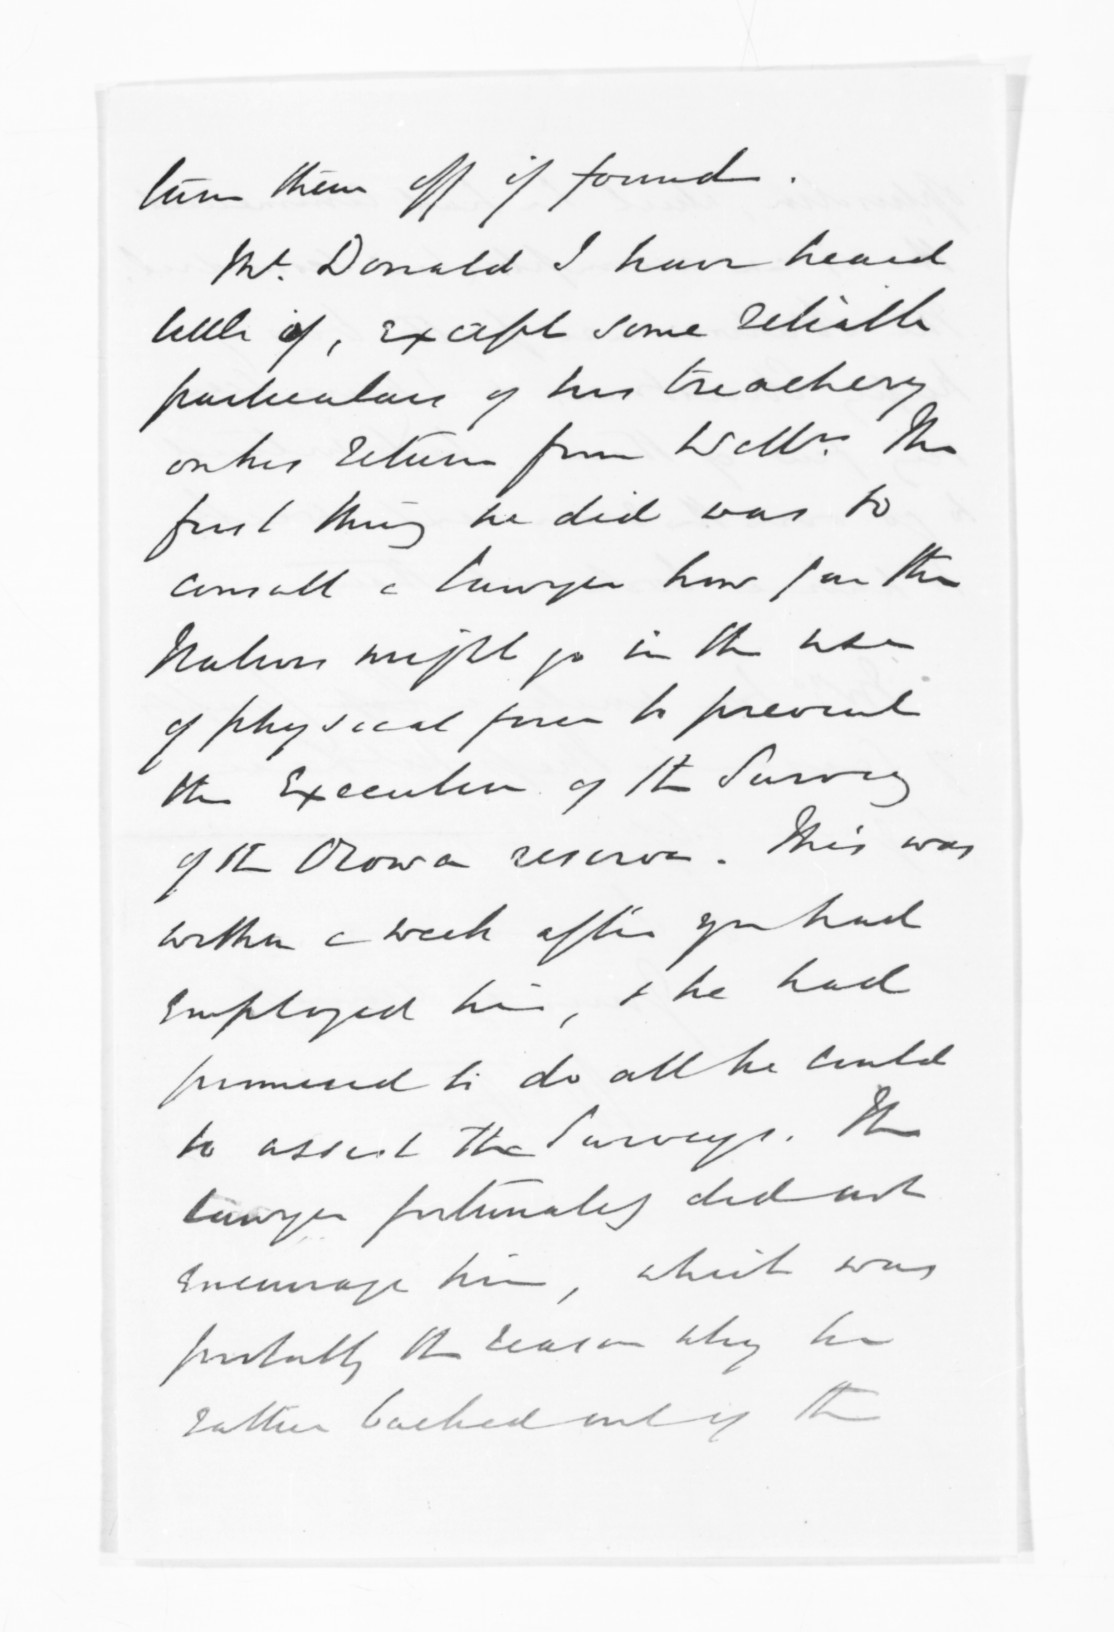 turn them off if found.
Mr. Donald I have heard
little of, except some reliable
particulars of his treachery
on his return from Welln. The
first thing he did was to
consult a lawyer how far the
Natives might go in the use
of physical force to prevent
the Execution of the Survey
of the Orowa reserve. This was
within a week after you had
employed him, & he had
promised to do all he could
to assist the Surveys. The
lawyer fortunately did not
encourage him, which was
probably the reason why he
rather backed out of the